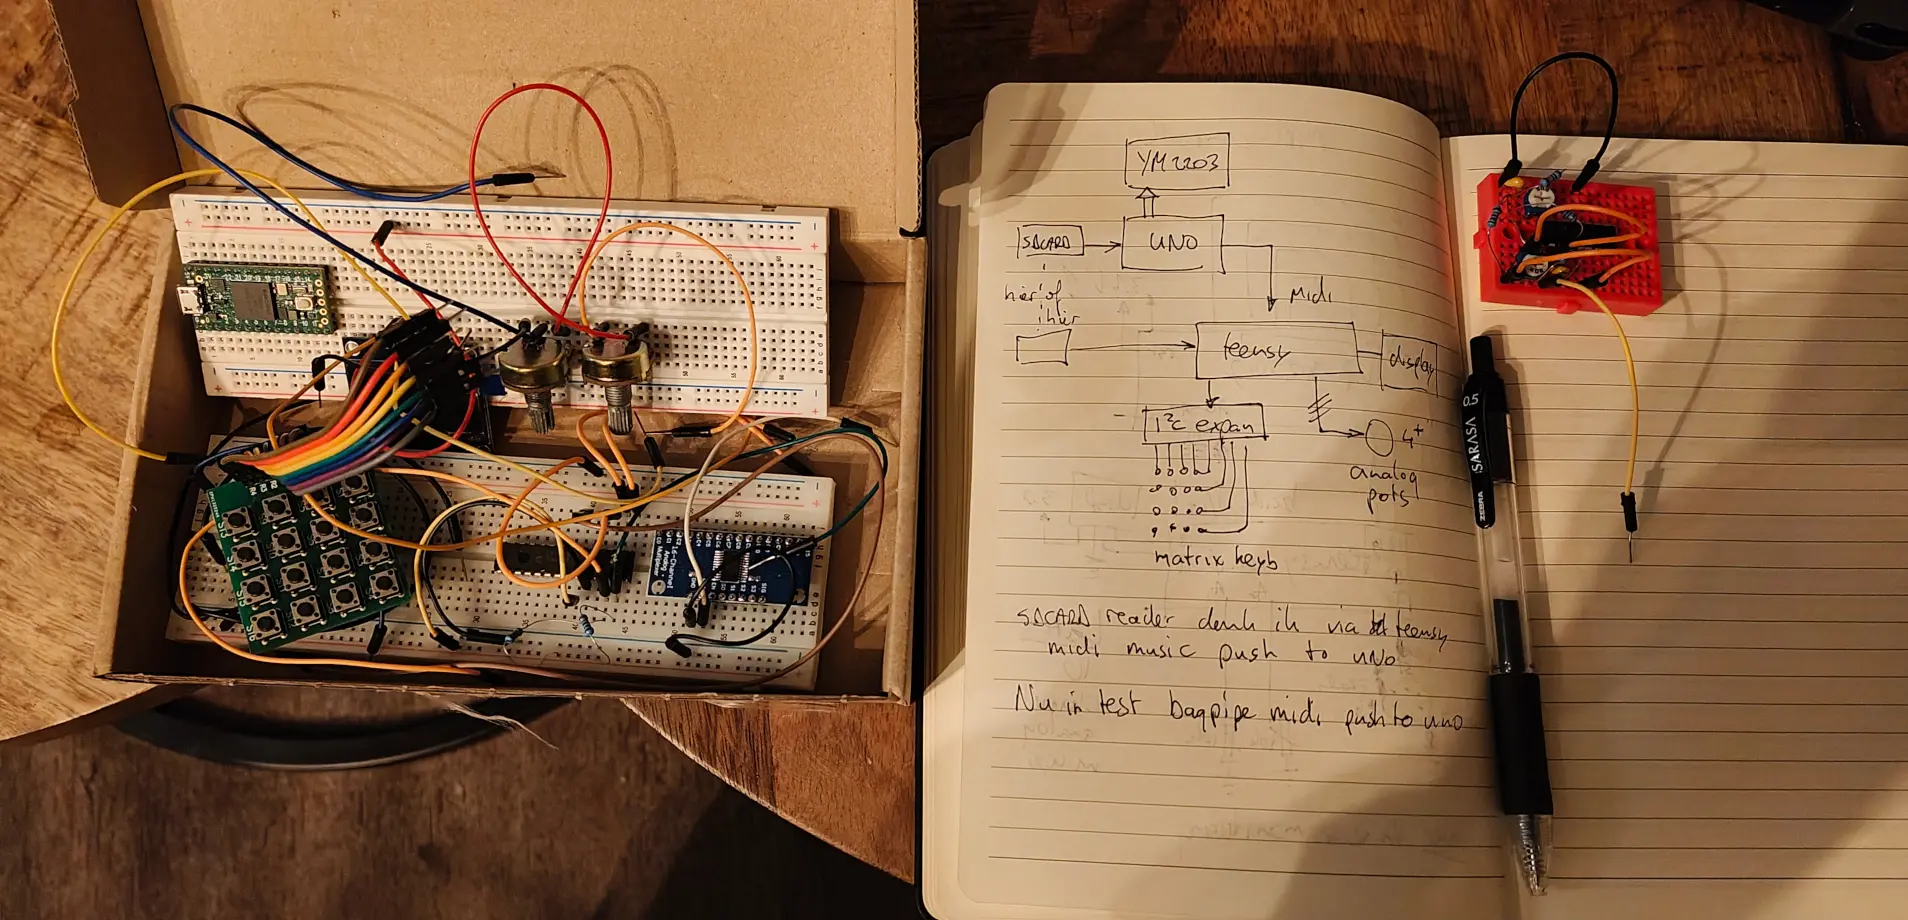 YM2203
SDCARD
UNO
hier of
hier
Midi
teensy
display
I²C expan
4+
analog
pots
matrix keyb
SDCARD reader denk ik via teensy
midi music push to UNO
Nu in test bagpipe midi push to uno
0.5
SARASA
ZEBRA
16-Channel
Analog
Multiplexer